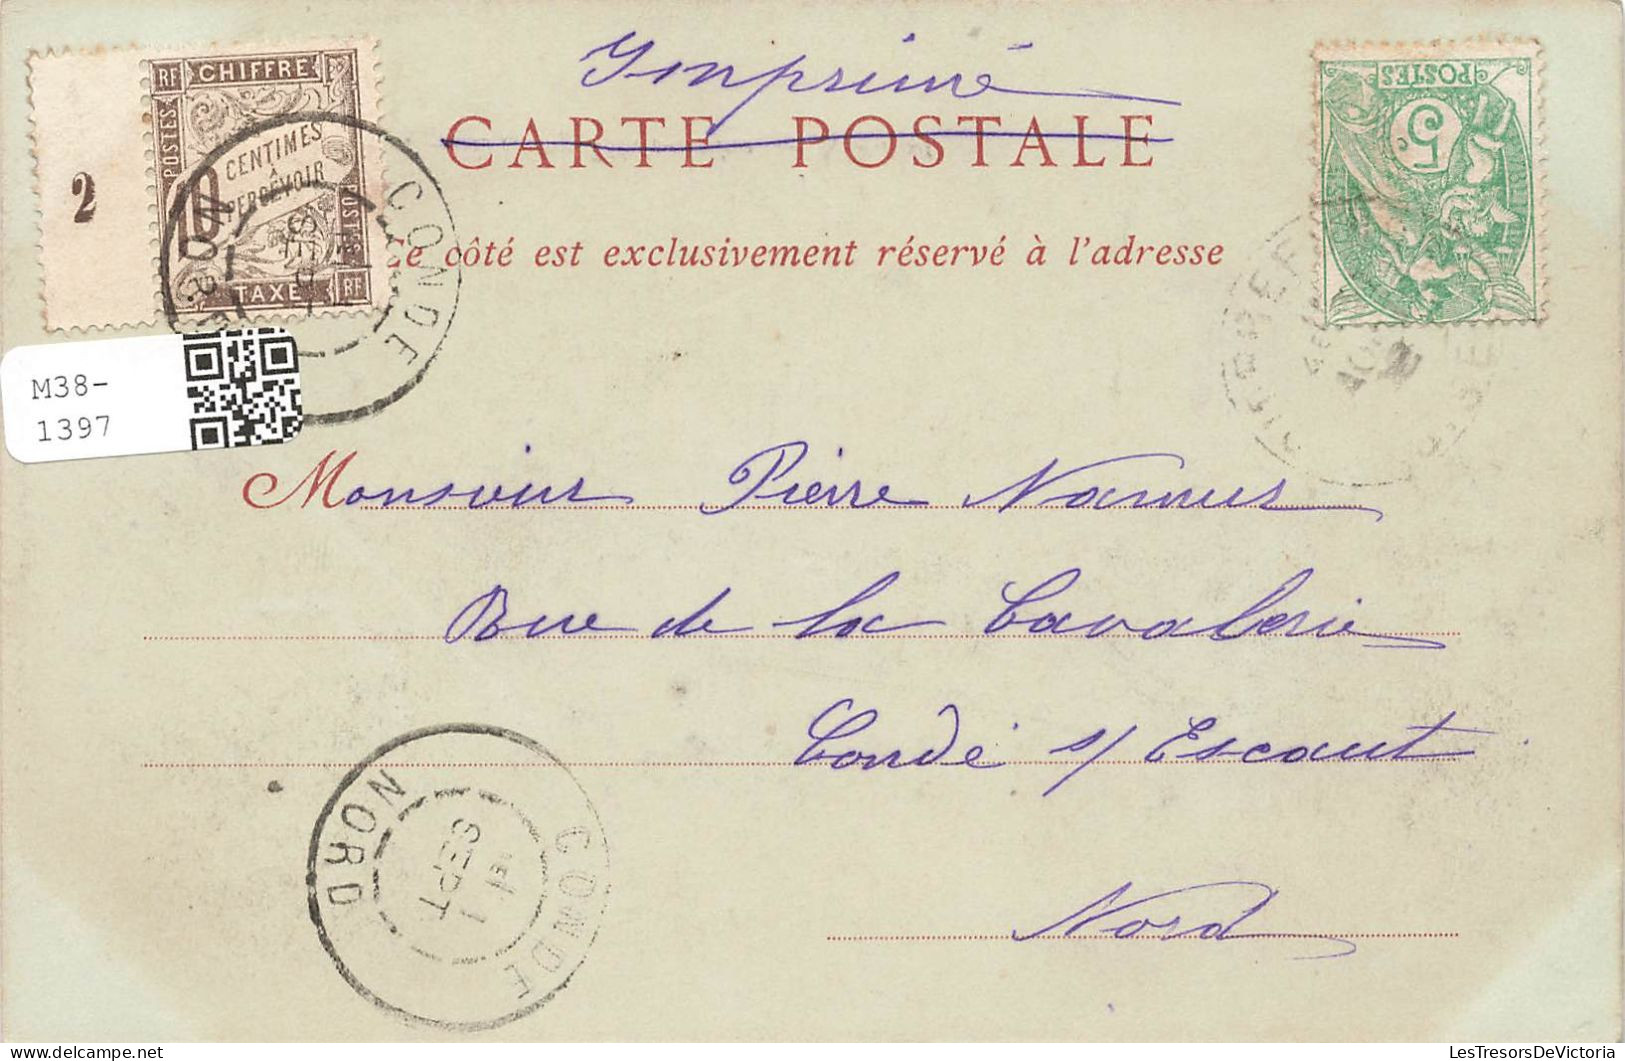 Imprimé
CARTE POSTALE
Ce côté est exclusivement réservé à l'adresse
RF CHIFFRE
POSTES
10 CENTIMES
À
PERCEVOIR
POSTES
TAXE RF
2
CONDE
NORD
POSTES
5c
M38-
1397
Monsieur Pierre Namur
Rue de la Cavalerie
Condé s/ Escaut
Nord
CONDE
NORD
SEPT
LesTresorsDeVictoria